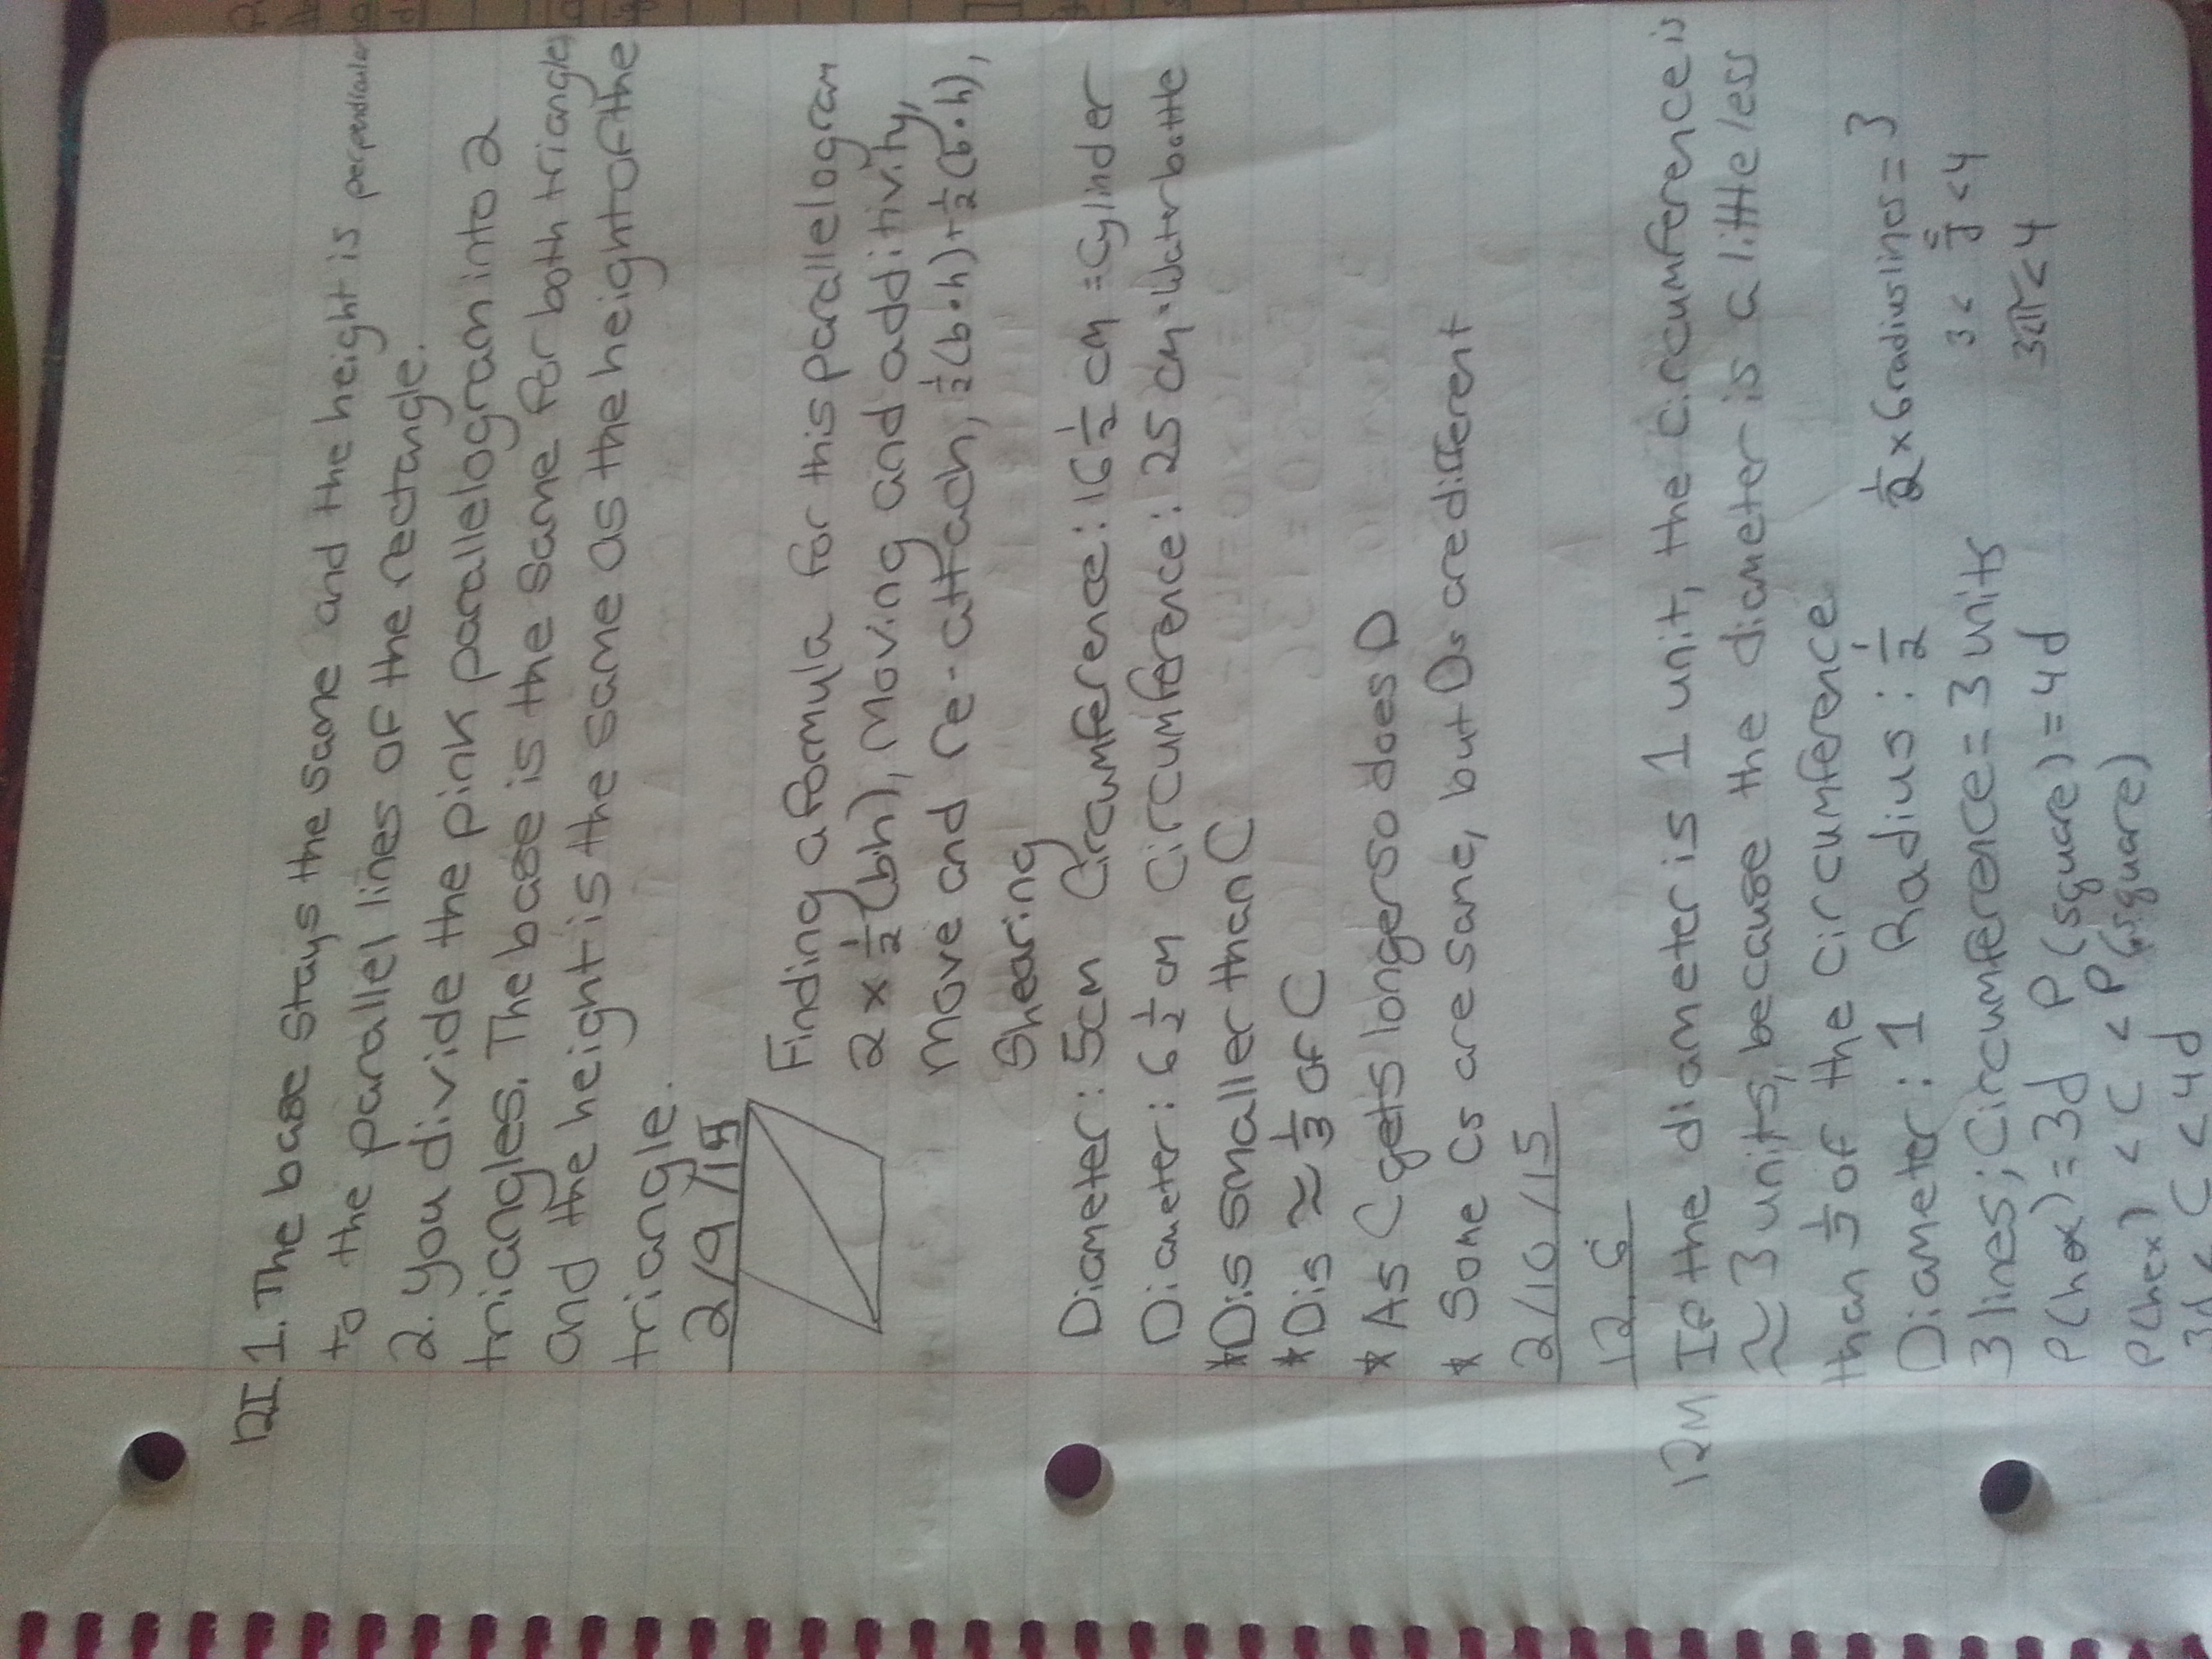 12I 1. The base stays the same and the height is perpendicular
to the parallel lines of the rectangle.
2. you divide the pink parallelogram into 2
triangles. The base is the same for both triangles
and the height is the same as the height of the
triangle.
2/9/15
Finding a formula for this parallelogram
2 x 1/2 (bh), Moving and additivity,
move and re-attach, 1/2 (b•h)+1/2(b•h),
Shearing
Diameter: 5cm Circumference: 16 1/2 cm = Cylinder
Diameter: 6 1/2 cm Circumference: 25 cm • Water bottle
*D is smaller than C
*D is ≈ 1/3 of C
* As C gets longer so does D
* Some Cs are same, but Ds are different
2/10/15
12.6
12M If the diameter is 1 unit, the circumference is
≈ 3 units, because the diameter is a little less
than 1/3 of the circumference
Diameter: 1 Radius: 1/2 1/2 x 6 radius lines = 3
3 lines; Circumference = 3 units 3 < c/d < 4
P(hex) = 3d P(square) = 4d 3<π<4
P(hex) < C < P(square)
3d < C < 4d